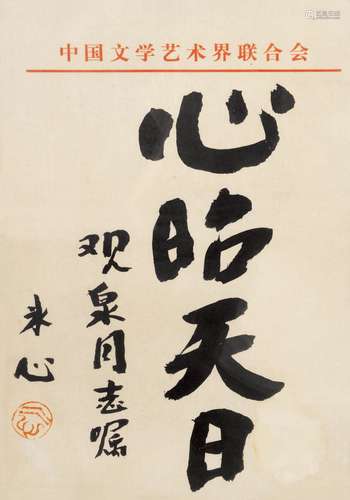 中国文学艺术界联合会
心昭天日
观泉同志嘱